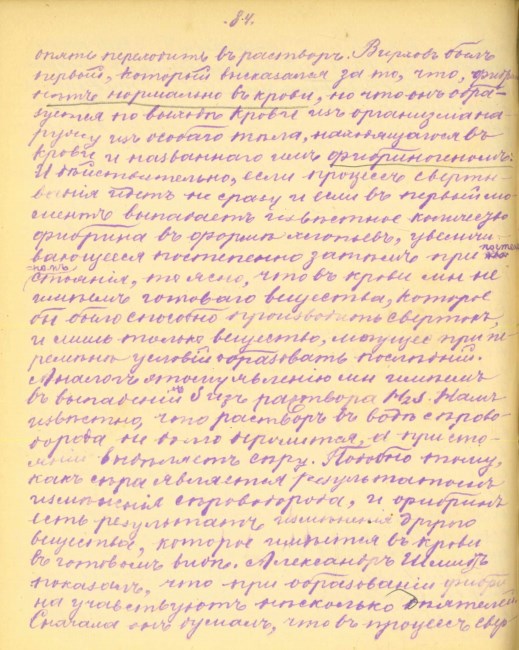 .84.
опять переходитъ въ растворъ. Вирховъ былъ
первый, который высказался за то, что, фибри
нѣтъ нормально въ крови, но что онъ обра-
зуется по выходѣ крови изъ организма на-
ружу изъ особаго тѣла, находящагося въ
крови и названнаго имъ фибриногеномъ.
И дѣйствительно, если процессъ сверты-
ванія идетъ не сразу и если въ первый мо-
ментъ выпадаетъ извѣстное количество
фибрина въ формѣ хлопьевъ, увеличи-
вающееся постепенно затѣмъ при
стояніи, то ясно, что въ крови мы не
имѣемъ готоваго вещества, которое
бы было способно производить свертокъ,
и лишь только вещество, могущее при пе-
ремѣнѣ условій образовать послѣдній.
Аналогъ этому явленію мы имѣемъ
въ выпаденіи S изъ раствора H₂S. Намъ
извѣстно, что растворъ въ водѣ сѣрово-
дорода не долго хранится, а при сто-
яніи выдѣляетъ сѣру. Подобно тому,
какъ сѣра является результатомъ
измѣненія сѣроводорода, и фибринъ
есть результатъ измѣненія другого
вещества, которое имѣется въ крови
въ готовомъ видѣ. Александръ Шмидтъ
показалъ, что при образованіи фибри
на участвуютъ нѣсколько дѣятелей.
Сначала онъ думалъ, что въ процессѣ свер